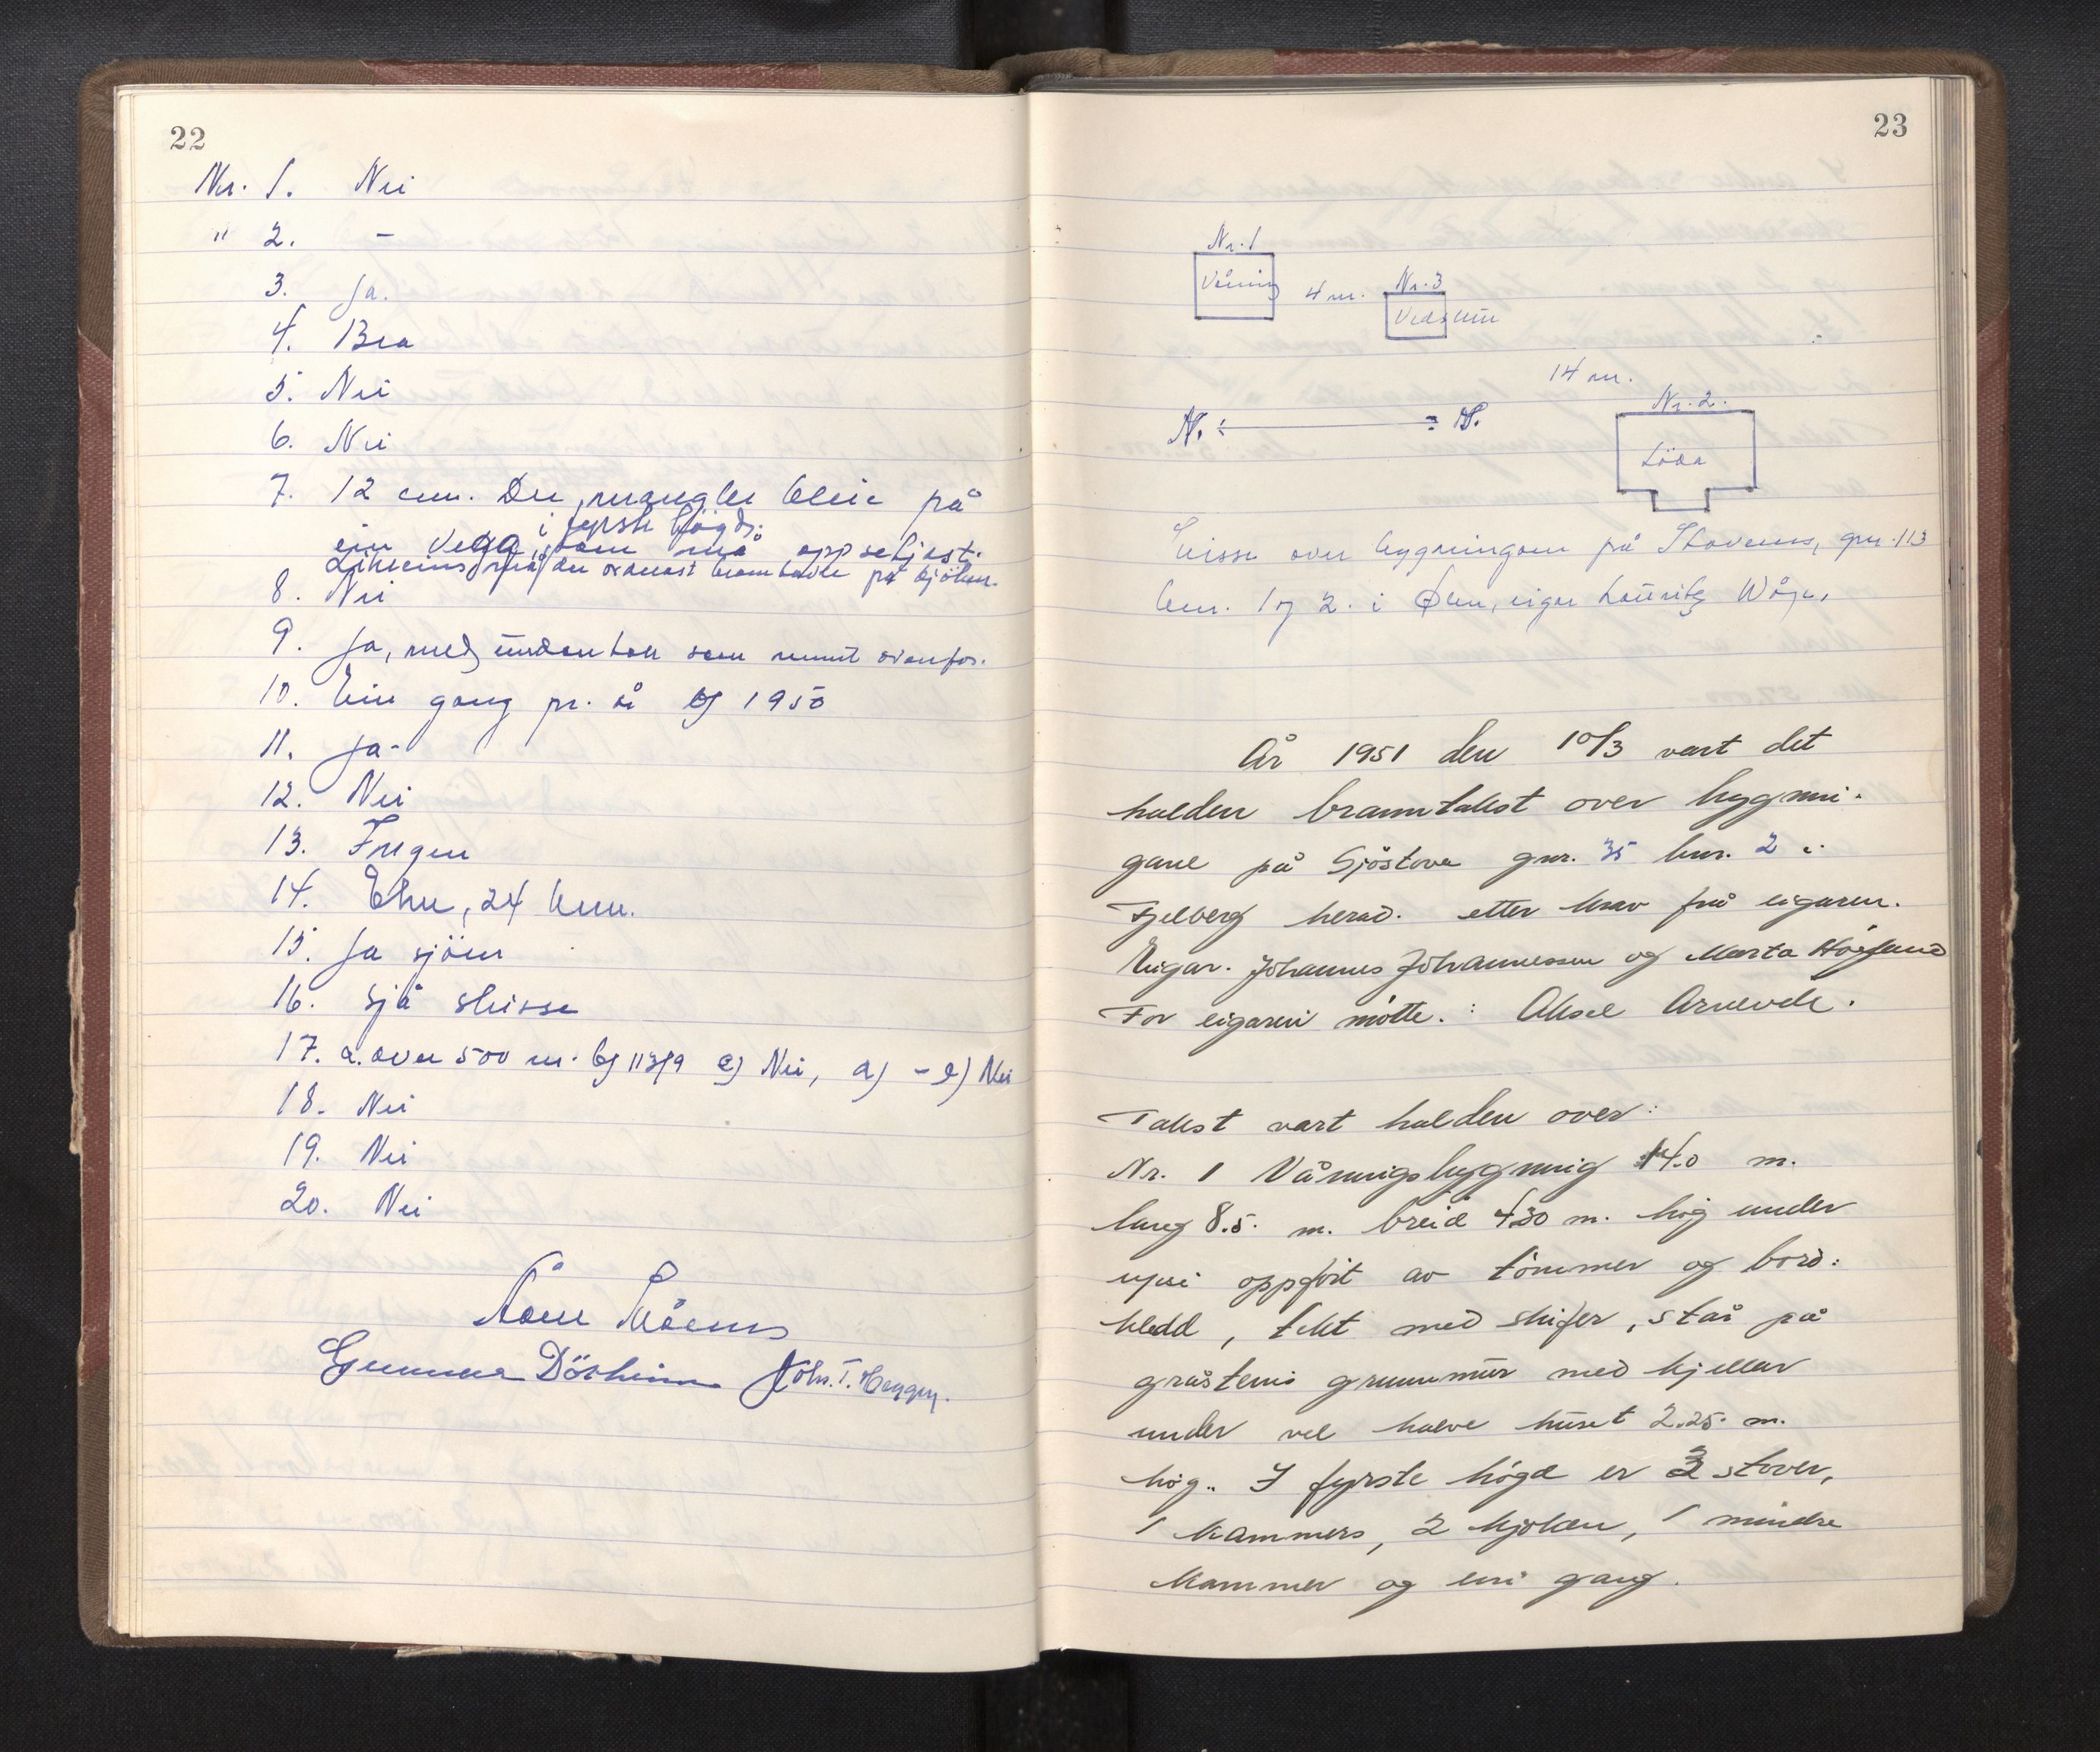 22
Nr. 1. Nei
" 2. -
3. Ja.
4. Bra
5. Nei
6. Nei
7. 12 cm. Der mangler bleie på
i fyrste högd.
ein vegg, som må oppsetjast.
Likeeins må der ordnast brannbalke på kjöken.
8. Nei
9. Ja, med undantak som nemnt ovanfor.
10. Ein gang pr. år b) 1950
11. Ja-
12. Nei
13. Ingen
14. Etne, 24 km.
15. Ja sjöen
16. Sjå skisse
17. a. over 500 m. b) 113/9 c) Nei, d) - e) Nei
18. Nei
19. Nei
20. Nei
Gunnar Dörheim Johs. T.
23
Nr. 1
Våning
4 m.
Nr. 3
Vedskur
14 m.
Nr. 2.
Löda
N. S.
over bygningane på gnr. 113
bnr. 1 og 2. i Ølen, eigar Lauritz Våge.
År 1951 den 10/3 vart det
halden branntakst over bygnin-
gane på Sjöstova gnr. 35 bnr. 2 i
Fjelberg herad. etter krav frå eigaren.
Eigar. Johannes Johannessen og Marta
For eigaren mötte.: Aksel
Takst vart halden over:
Nr. 1 Våningsbygning 14.0 m.
lang 8.5. m. breid 4.30 m. høg under
upsi oppfört av tömmer og bord:
kledd, tekt med skifer, står på
gråsteins grunnmur med kjellar
under vel halve huset 2.25. m.
høg.. I fyrste högd er 3 stover,
1 kammers, 2 kjöken, 1 mindre
kammer og ein gang.